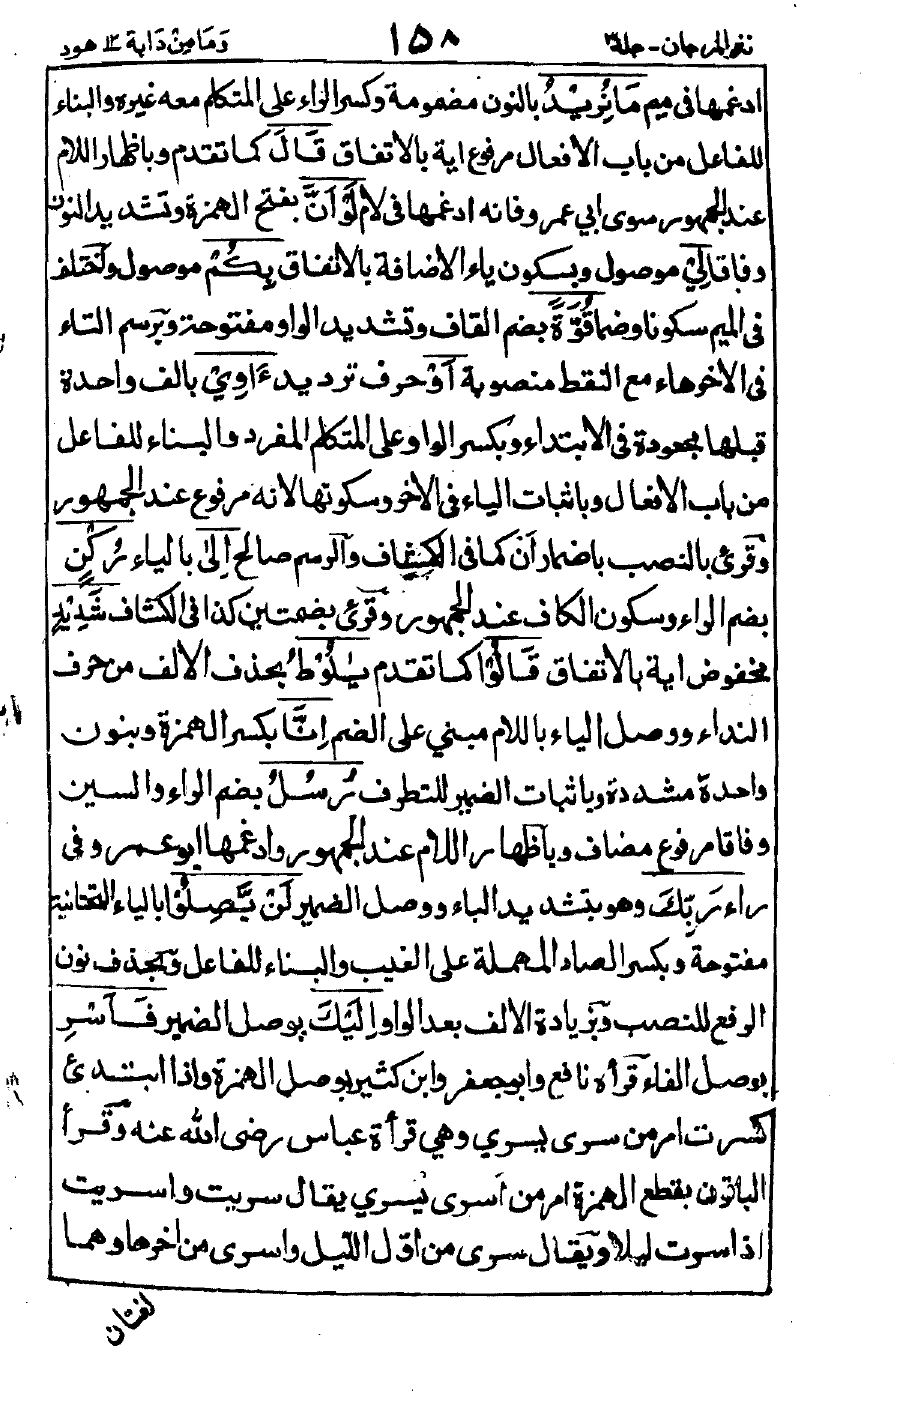 نثر المرجان - جلد ٣ ١٥٨ وما من دابة ١٢ هود
ادغمها فى ميم مَا نُرِيْدُ بالنون مضمومة وكسر الراء على المتكلم معه غيره والبناء
للفاعل من باب الافعال مرفوع اية بالاتفاق قَالَ كما تقدم وباظهار اللام
عند الجمهور سوى ابي عمرو فانه ادغمها فى لام لَوْ اَنَّ بفتح الهمزة وتشديد النون
وفاقا لِيْ موصول وبسكون ياء الاضافة بالاتفاق بِكُمْ موصول واختلف
فى الميم سكونا وضما قُوَّةً بضم القاف وتشديد الواو مفتوحة وبرسم التاء
فى الاخر هاء مع النقط منصوبة اَوْ حرف ترديد ءَاوِيْ بالف واحدة
قبلها مجعودة فى الابتداء وبكسر الواو على المتكلم المفرد والبناء للفاعل
من باب الافعال وباثبات الياء فى الاخر وسكونها لانه مرفوع عند الجمهور
وقرئ بالنصب باضمار اَن كما فى الكشاف والرسم صالح اِلىٰ بالياء رُكْنٍ
بضم الراء وسكون الكاف عند الجمهور وقرئ بضمتين كذا فى الكشاف شَدِيْدٍ
مخفوض اية بالاتفاق قَالُوْا كما تقدم يٰلُوْطُ بحذف الالف من حرف
النداء ووصل الياء باللام مبني على الضم اِنَّا بكسر الهمزة وبنون
واحدة مشددة وباثبات الضمير للتطرف رُسُلُ بضم الراء والسين
وفاقا مرفوع مضاف وباظهار اللام عند الجمهور وادغمها ابو عمرو فى
راء رَبِّكَ وهو بتشديد الباء ووصل الضمير لَنْ يَّصِلُوْا بالياء التحتانية
مفتوحة وبكسر الصاد المهملة على الغيب والبناء للفاعل وبحذف نون
الرفع للنصب وبزيادة الالف بعد الواو اِلَيْكَ بوصل الضمير فَاَسْرِ
بوصل الفاء قرأه نافع وابو جعفر وابن كثير بوصل الهمزة واذا ابتدئ
كسرت امر من سرى يسري وهي قرأة عباس رضى الله عنه وقرأ
الباقون بقطع الهمزة امر من اسرى يسري يقال سريت واسريت
اذا سرت ليلا ويقال سرى من اوّل الليل واسرى من اخرها وهما
لغتان